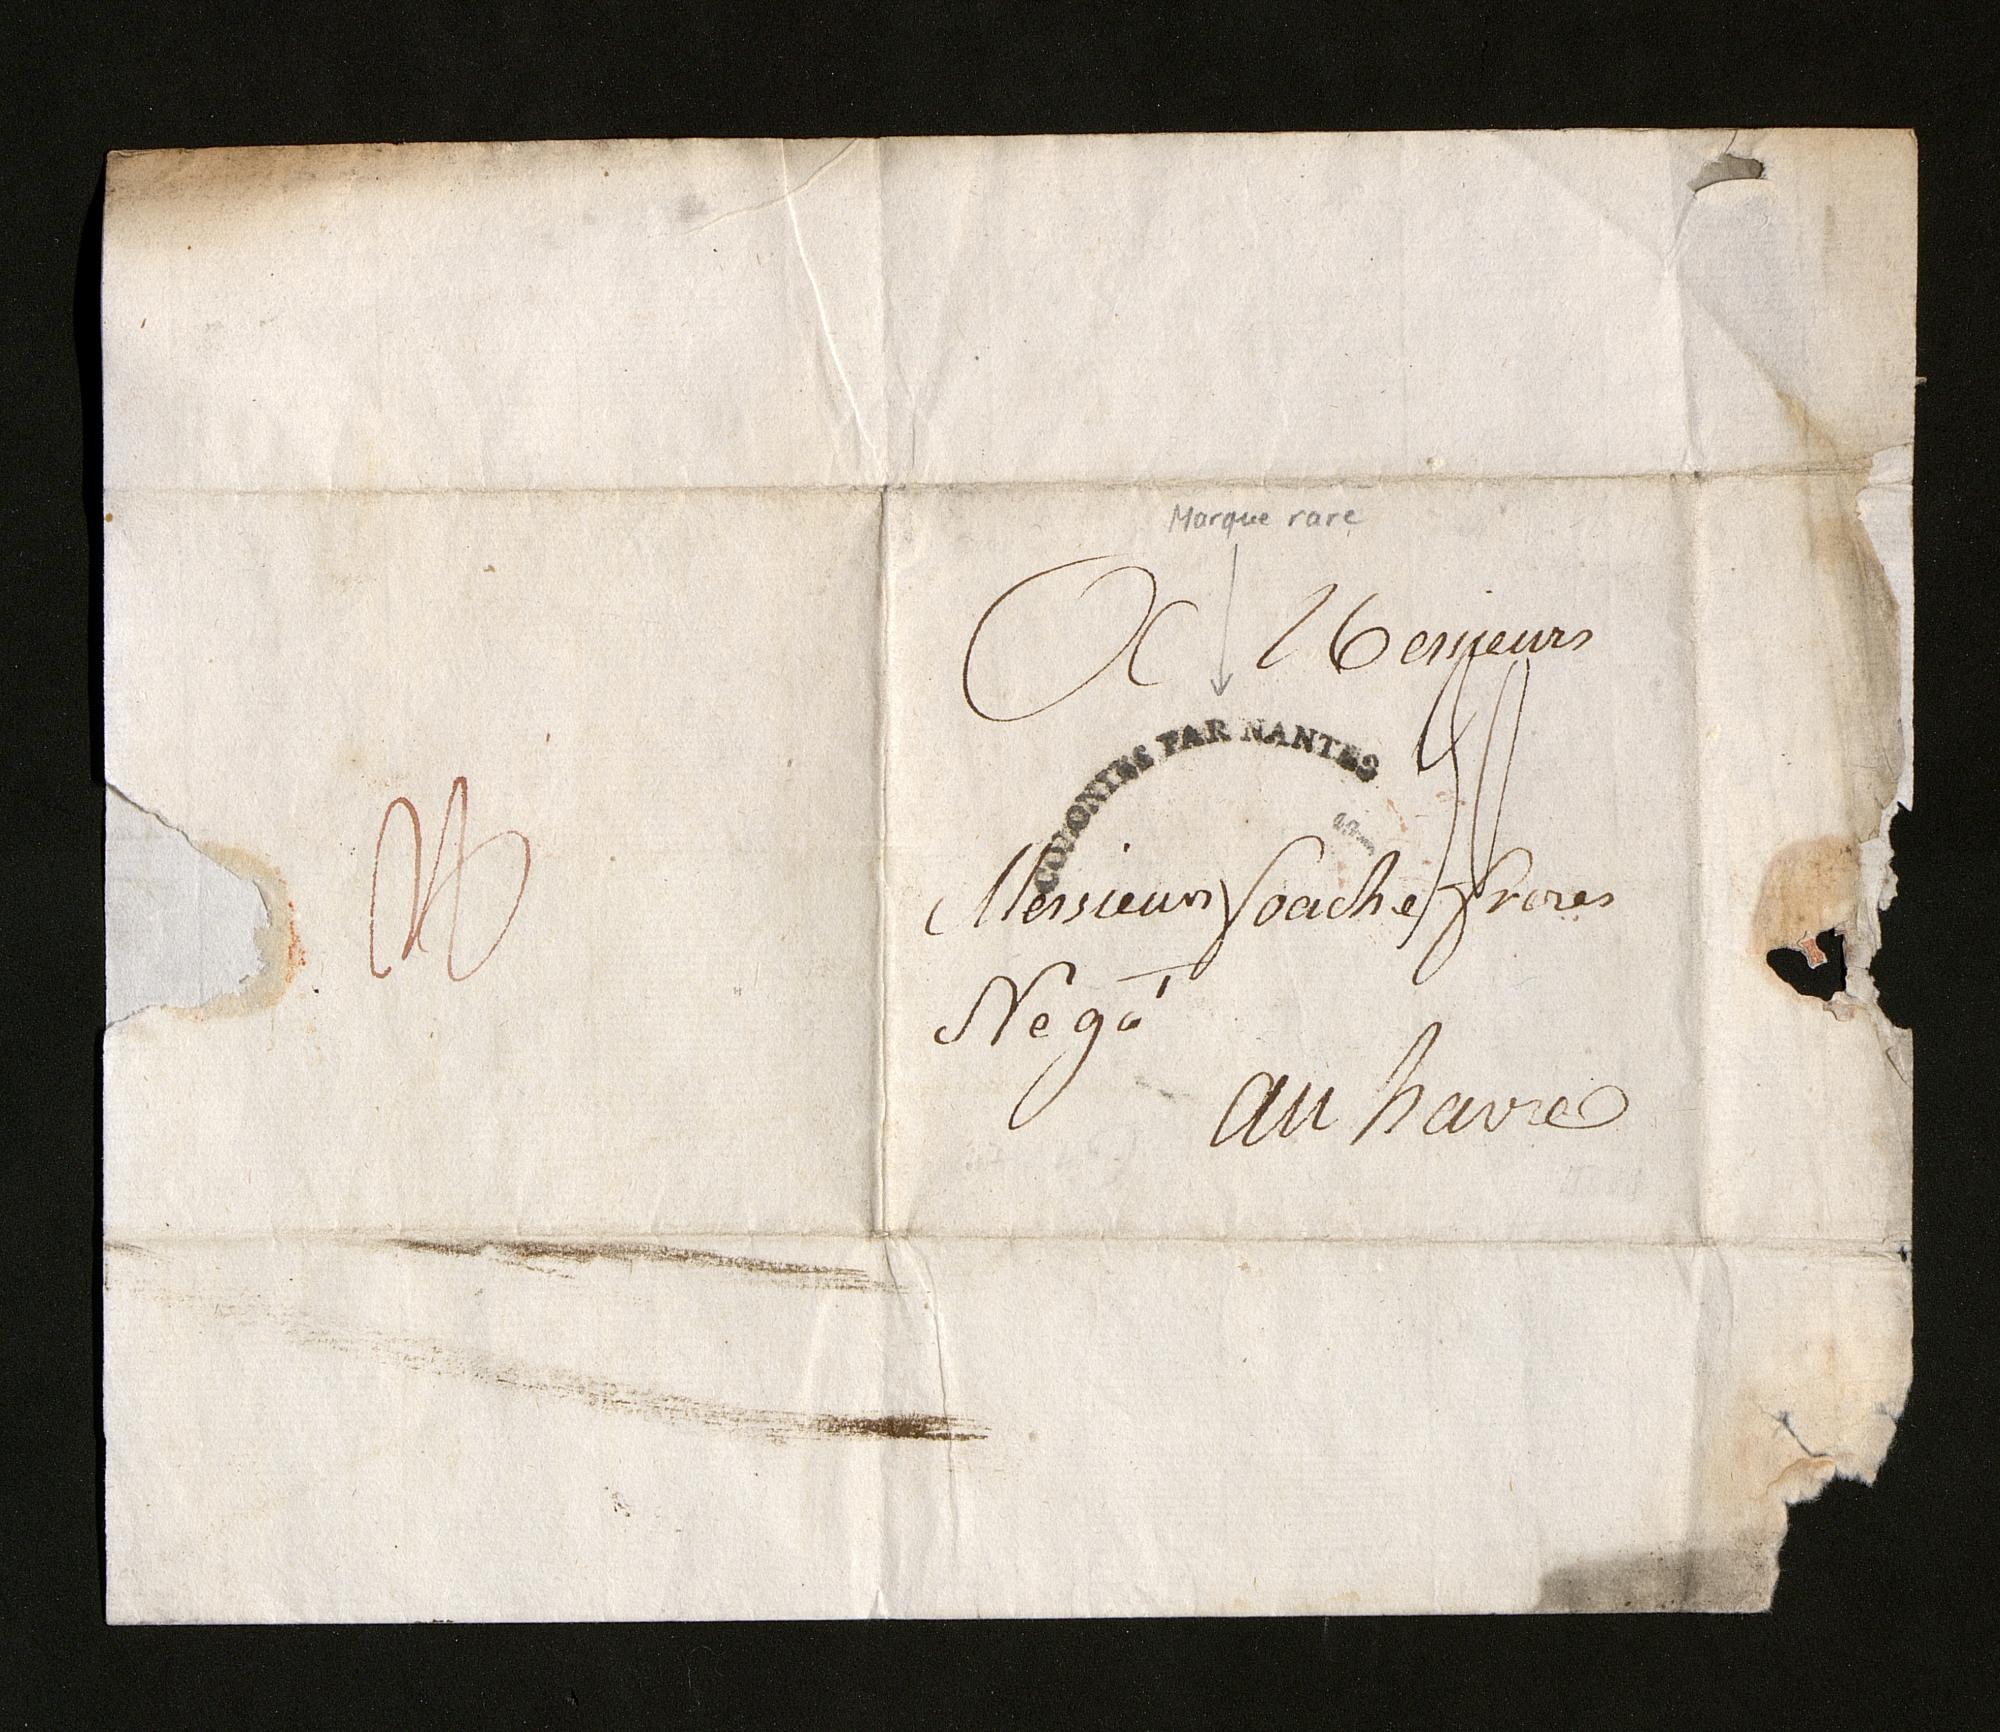 Marque rare
A Messieurs
COLONIES PAR NANTES
Messieurs foache frores
Negó
au havre